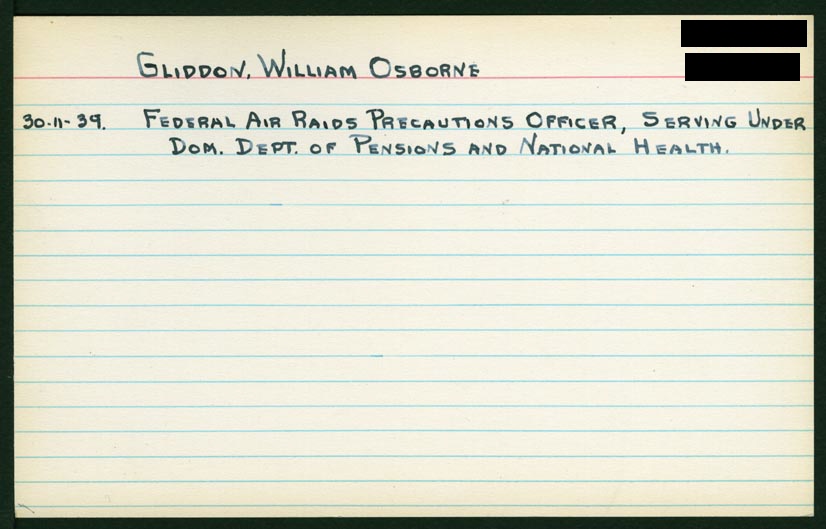 GLIDDON, WILLIAM OSBORNE
30-11-39. FEDERAL AIR RAIDS PRECAUTIONS OFFICER, SERVING UNDER
DOM. DEPT. OF PENSIONS AND NATIONAL HEALTH.